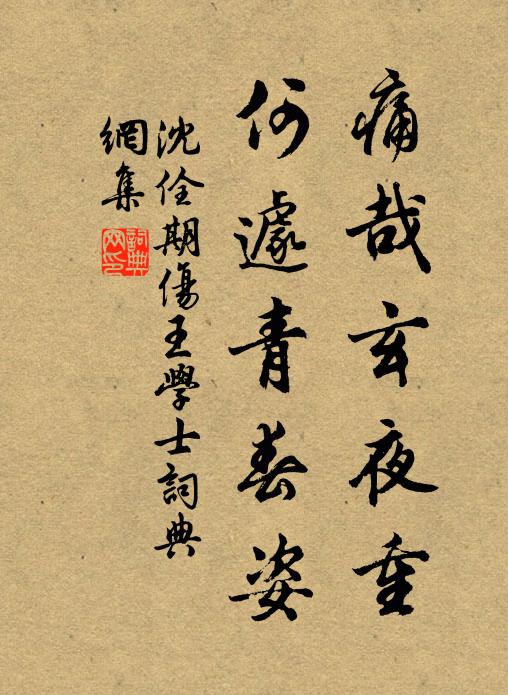 痛哉玄夜重
何遽青春姿
沈佺期傷王學士詞典
網集
詞典
網印